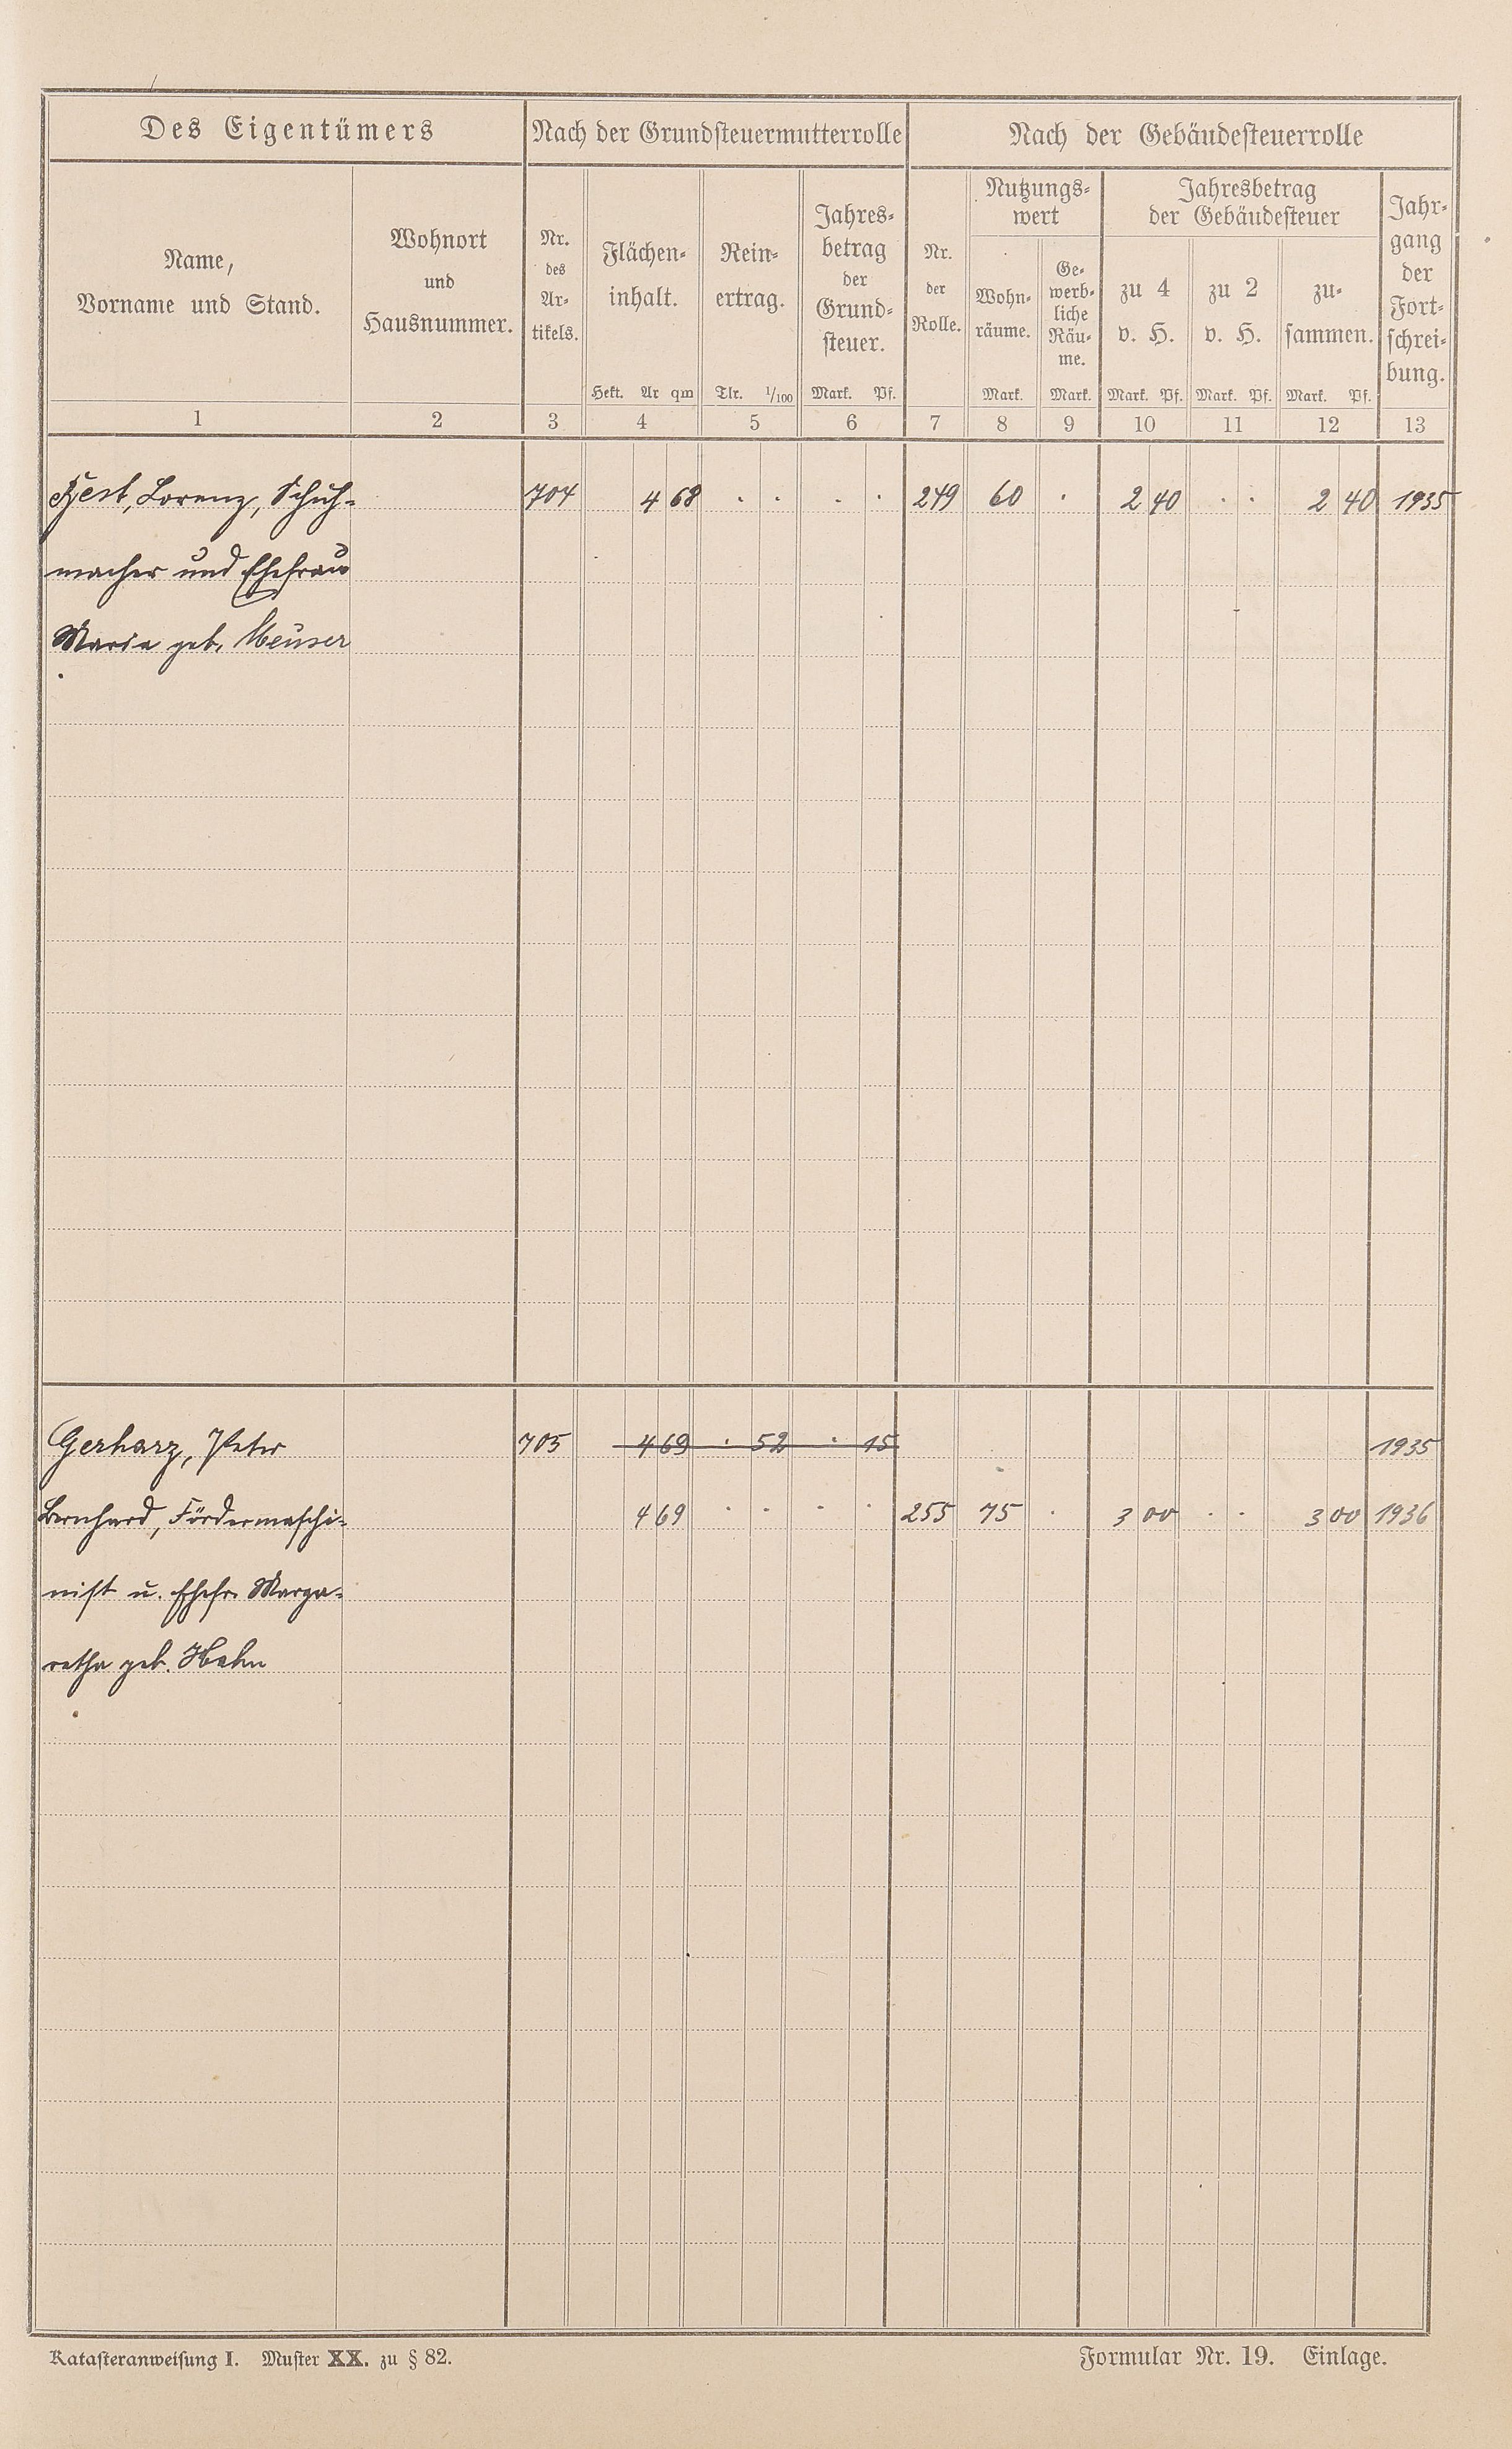 Des Eigentümers Nach der Grundsteuermutterrolle Nach der Gebäudesteuerrolle
Name,
Vorname und Stand.
Wohnort
und
Hausnummer.
Nr.
des
Ar-
tikels.
Flächen-
inhalt.
Hekt. Ar qm
Rein-
ertrag.
Tlr. 1/100
Jahres-
betrag
der
Grund-
steuer.
Mark. Pf.
Nr.
der
Rolle.
Nutzungs-
wert
Wohn-
räume.
Mark.
Ge-
werb-
liche
Räu-
me.
Mark.
Jahresbetrag
der Gebäudesteuer
zu 4
v. H.
Mark. Pf.
zu 2
v. H.
Mark. Pf.
zu-
sammen.
Mark. Pf.
Jahr-
gang
der
Fort-
schrei-
bung.
1 2 3 4 5 6 7 8 9 10 11 12 13
Lorenz, Schuh- 704 4 68 . . . . 249 60 . 2 40 . . 2 40 1935
macher und Ehefrau
Maria geb. Meuser
Gerharz, Peter 705 4 69 . 52 . 15 1935
Bernhard, Fördermaschi- 4 69 . . . . 255 75 . 3 00 . . 3 00 1936
nist u. Ehefr. Marga-
retha geb. Hahn
Katasteranweisung I. Muster XX. zu § 82. Formular Nr. 19. Einlage.